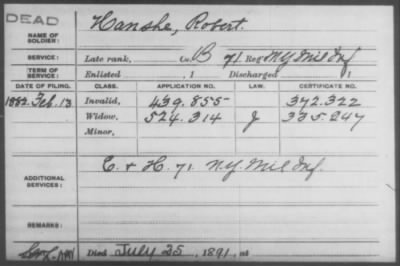 DEAD
NAME OF SOLDIER: Hanshe, Robert.
SERVICE: Late rank, Co. B 71 Reg't N.Y. Mil Inf
TERM OF SERVICE: Enlisted , 1 Discharged , 1
DATE OF FILING. CLASS. APPLICATION NO. LAW. CERTIFICATE NO.
1882. Feb. 13 Invalid, 439.855 372.322
Widow, 524.314 J 335.247
Minor,
ADDITIONAL SERVICES: C. & H. 71. N.Y. Mil Inf.
REMARKS:
Died July 25, 1891, at